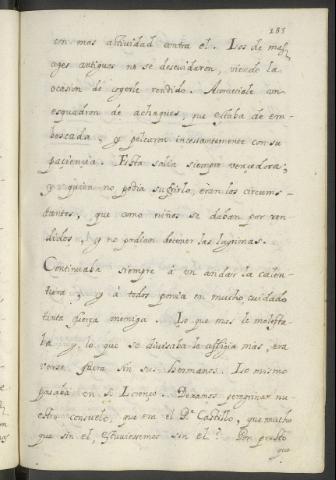 185
con mas actividad contra el. Los de mas
ages antiguos no se descuidaron, viendo la
ocasion de cogerle rendido. Acometiole un
esquadron de achaques, que estaba de em-
boscada, y pelearon incessantemente con su
paciencia. Esta salia siempre vencedora;
y quien no podia sufrirlo, eran los circums-
tantes, que como niños se daban por ren-
didos, y no podian detener las lagrimas.
Continuaba siempre à en andar la calen-
tura, y à todos ponia en mucho cuidado
tanta fuerça enemiga. Lo que mas le molesta-
ba y lo que se divisaba le affligia mas, era
verse fuera sin sus hermanos. Lo mismo
pasaba en Sn Lorenço. Dexamos peregrinar nu-
estro consuelo, que era el Pe Castillo, que mucho
que sin el, estuviessemos sin el? Por presto
que